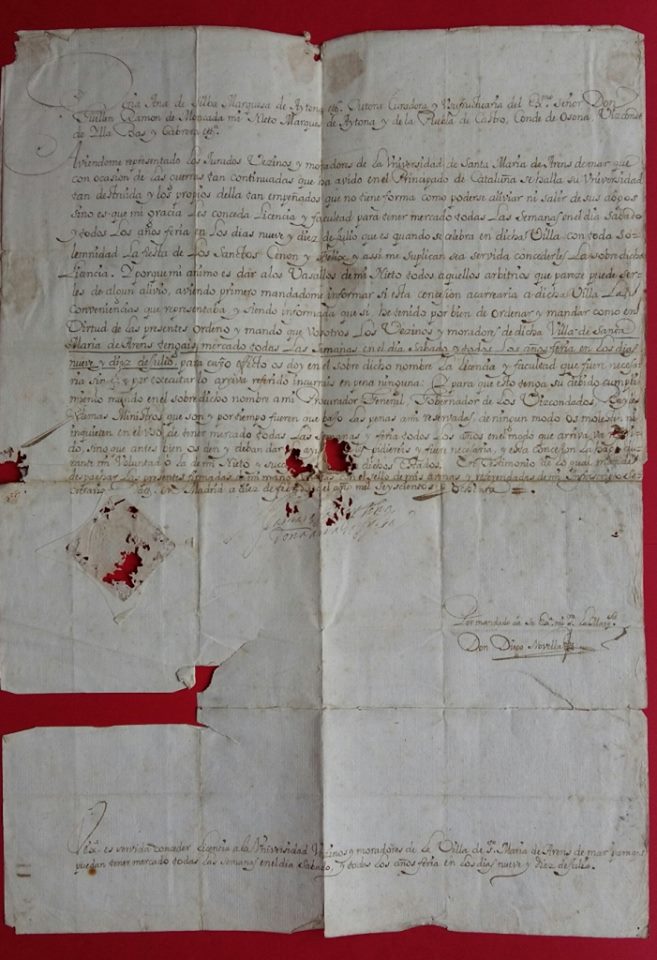 oña Ana de Silba Marquesa de Aytona etc. Tutora Curadora y Vsufructuaria del Exmo. Señor Don
Guillen Ramon de Moncada mi Nieto Marques de Aytona y de la Puebla de Castro, Conde de Osona, Vizconde
de Illa Bas y Cabrera etc.
Aviendome representado los Jurados Vezinos y moradores de la Vniversidad de Santa Maria de Arens de mar que
con ocasion de las guerras tan continuadas que ha avido en el Prinçipado de Cataluña se halla su Vniversidad
tan destruida y los propios della tan empeñados que no tiene forma como poderse aliviar ni salir de sus
sino es que mi graçia les conceda Liçencia y facultad para tener mercado todas Las Semanas en el dia Sabado
y todos Los años feria en Los dias nueve y diez de Julio que es quando se celebra en dicha Villa con toda So
lemnidad La fiesta de Los Santos Cenon y Felix y assi me suplican sea servida concederles La sobredicha
Liçençia. Y porque mi animo es dar a los Vasallos de mi Nieto todos aquellos arbitrios que pareçe puede ser
les de algun alivio, aviendo primero mandadome informar si esta conçesion acarrearia a dicha Villa Las
conveniençias que representaba y siendo informada que si, he tenido por bien de Ordenar y mandar como en
Virtud de las presentes Ordeno y mando que Vosotros Los Vezinos y moradores de dicha Villa de Santa
Maria de Arens tengais mercado todas Las Semanas en el dia Sabado y todos Los años feria en Los dias
nueve y diez de Julio, para cuyo effecto os doy en el sobre dicho nombre La Liçencia y facultad que fuere neçesa
ria sin q. por executar lo arriva referido incurrais en pena ninguna. Y para que esto tenga su debido cumpli
miento mando en el sobredicho nombre a mi Procurador General, Governador de Los Vizcondados, Bayles
y demas Ministros que son y por tiempo fueren que bajo las penas a mi reservadas, de ningun modo os molesten ni
inquieten en el vso de tener mercado todas Las Semanas y feria todos Los años en el modo que arriva va
do, sino que antes bien os den y hagan dar pidiereis y fuere neçesaria, y esta conçesion La hago du
rante mi Voluntad La de mi Nieto y dichos Estados. En Testimonio de Lo qual
despachar Las presentes firmadas de mi mano el sello de mis armas y refrendadas de mi Se
cretario. en Madrid a diez de el año mil Seysçientos y
Por mandado de su Exa. mi Sa. la Marqa.
Don Diego Novella
V. Exa. es servida conçeder Liçencia a la Vniversidad Vezinos y moradores de La Villa de Sta. Maria de Arens de mar para que
puedan tener mercado todas las semanas en el dia Sabado, y todos los años feria en Los dias nueve y Diez de Julio.